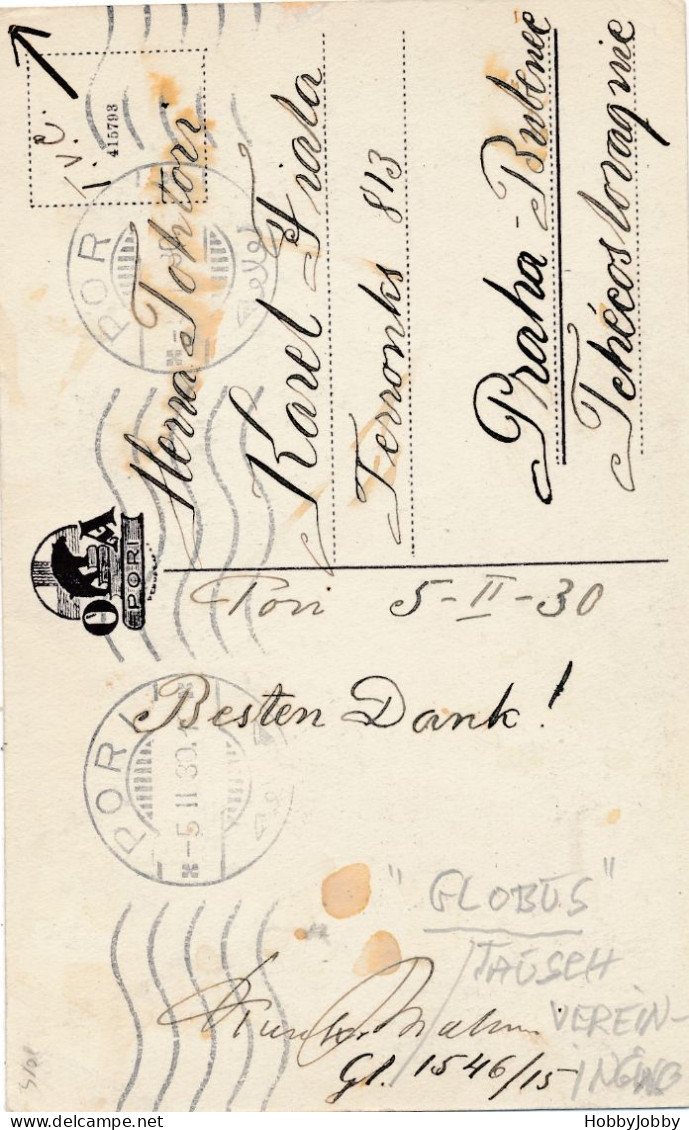 T.v.C.
415793
Herra Tohtori
Karel Fiala
Terronks 813
Praha - Bubeneč
Tchécoslovaquie
O A
PORI
PORI
PORI
-5 II 30
Pori 5-II-30
Besten Dank!
Gl. 1546/15
"GLOBUS"
TAUSCH
VEREIN-
HobbyJobby